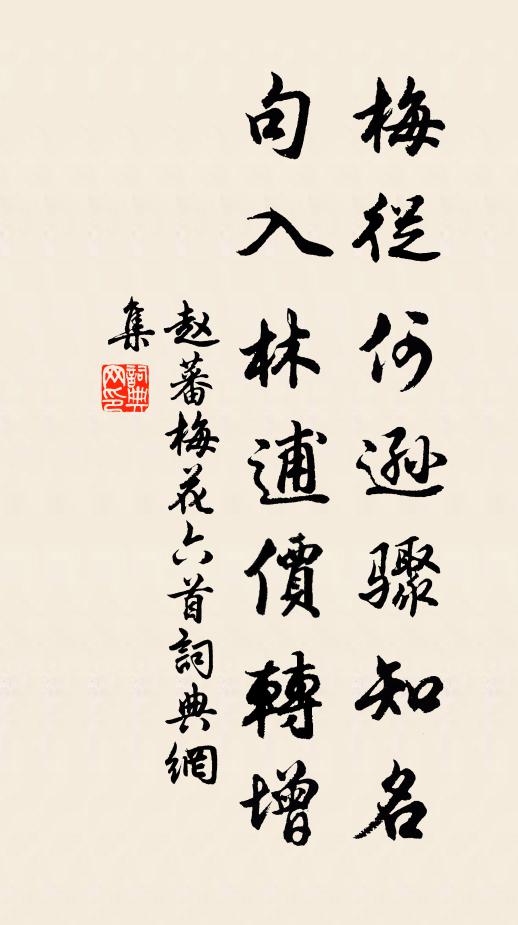 梅從何遜驟知名
句入林逋價轉增
赵蕃梅花六首詞典網
集
詞典
网印